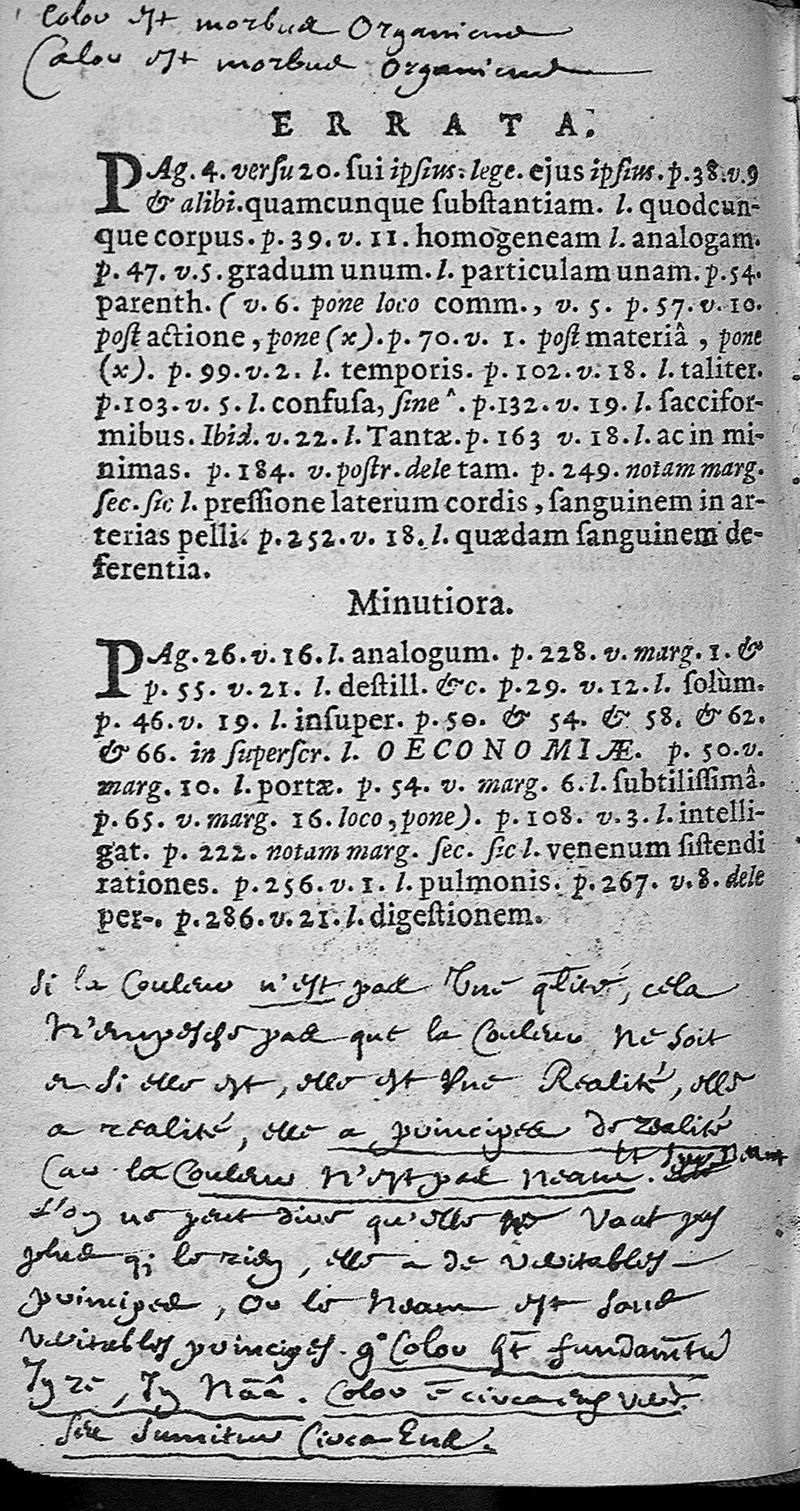 Color est morbus Organicus
Calor est morbus Organicus
ERRATA.
PAg. 4. versu 20. sui ipsius. lege. ejus ipsius. p. 38. v. 9
& alibi. quamcunque substantiam. l. quodcun-
que corpus. p. 39. v. 11. homogeneam l. analogam.
p. 47. v. 5. gradum unum. l. particulam unam. p. 54.
parenth. ( v. 6. pone loco comm., v. 5. p. 57. v. 10.
post actione, pone (x). p. 70. v. 1. post materiâ, pone
(x). p. 99. v. 2. l. temporis. p. 102. v. 18. l. taliter.
p. 103. v. 5. l. confusa, sine ^. p. 132. v. 19. l. saccifor-
mibus. Ibid. v. 22. l. Tantæ. p. 163 v. 18. l. ac in mi-
nimas. p. 184. v. postr. dele tam. p. 249. notam marg.
sec. sic l. pressione laterum cordis, sanguinem in ar-
terias pelli. p. 252. v. 18. l. quædam sanguinem de-
ferentia.
Minutiora.
PAg. 26. v. 16. l. analogum. p. 228. v. marg. 1. &
p. 55. v. 21. l. destill. &c. p. 29. v. 12. l. solùm.
p. 46. v. 19. l. insuper. p. 50. & 54. & 58. & 62.
& 66. in superscr. l. OECONOMIÆ. p. 50. v.
marg. 10. l. portæ. p. 54. v. marg. 6. l. subtilissimâ.
p. 65. v. marg. 16. loco, pone). p. 108. v. 3. l. intelli-
gat. p. 222. notam marg. sec. sic l. venenum sistendi
rationes. p. 256. v. 1. l. pulmonis. p. 267. v. 8. dele
per-. p. 286. v. 21. l. digestionem.
Si la Couleur n'est pas Une qlité, cela
N'empesche pas que la Couleur Ne soit
si elle est, elle est Une Realité, elle
a realité, elle a principes de realité
Car la Couleur N'est pas Neant.
L'on ne peut dire qu'elle Vaut pas
plus q; le rien, elle a de Veritables
principes, Ou le Neant est sans
Veritables principes. Color fundam̃tũ
In re, In Color circa ens
Sumitur Circa Ens.